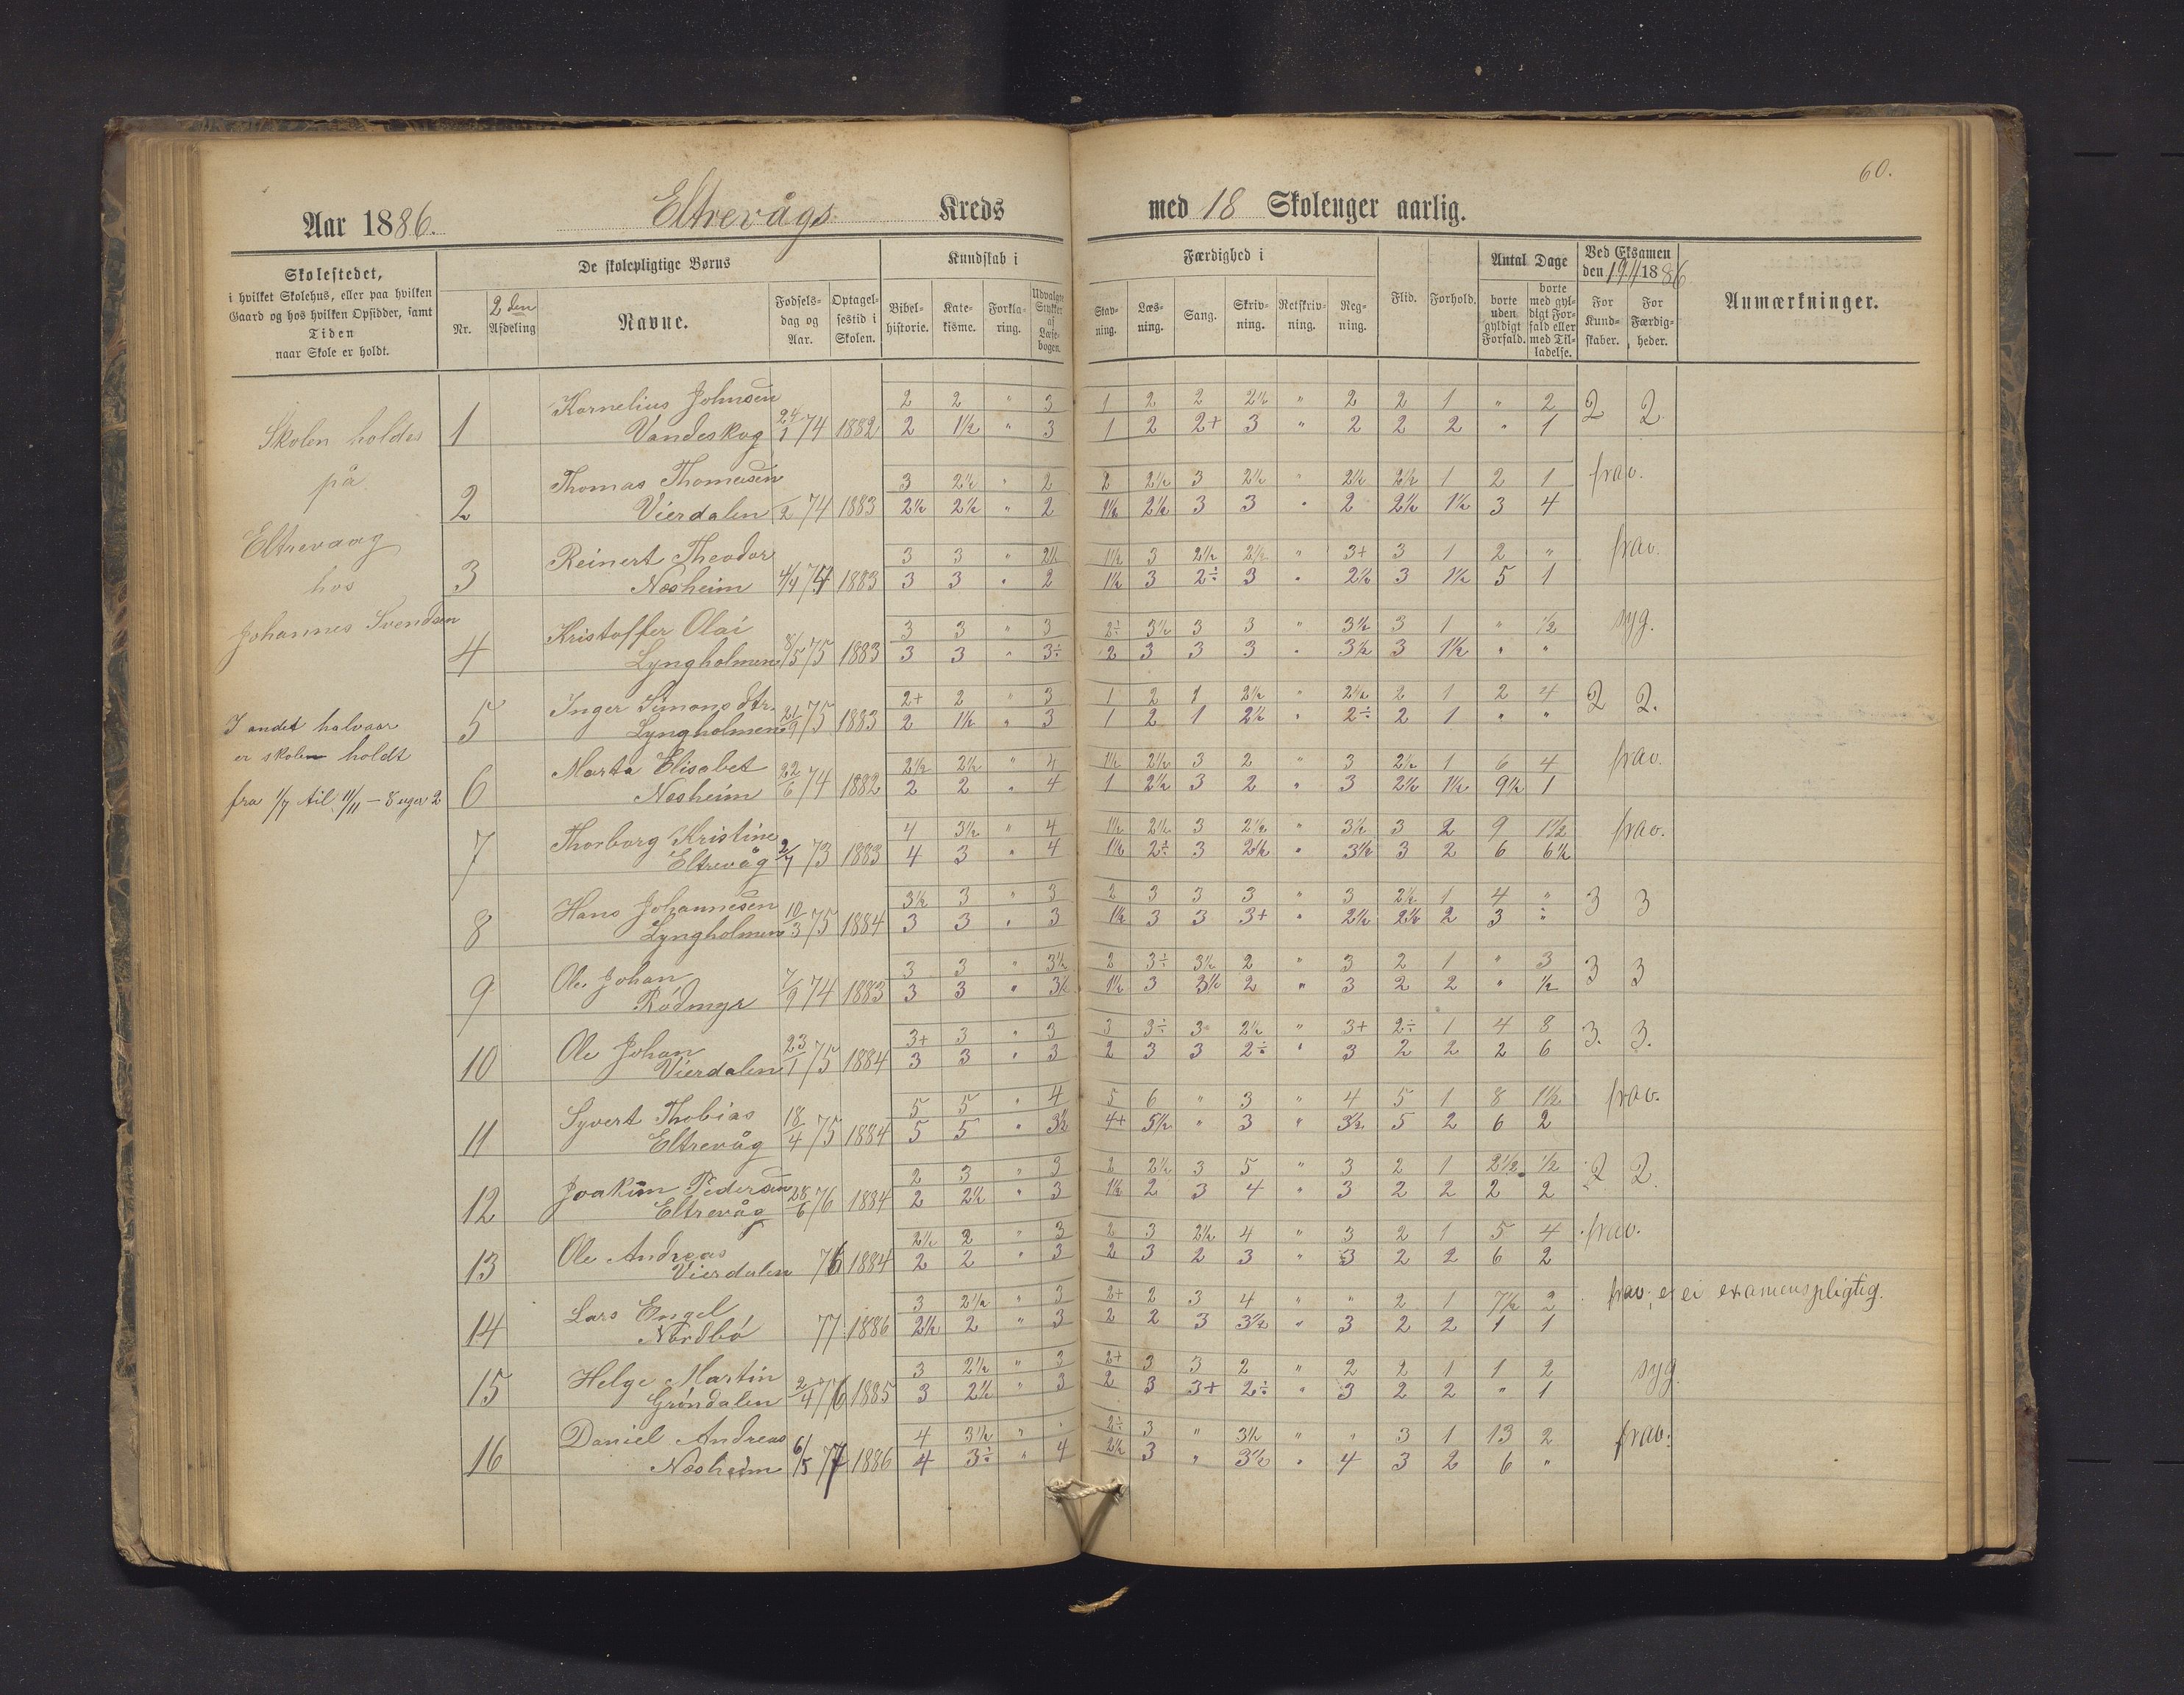 60.
Aar 1886. Eltrevågs Kreds med 18 Skoleuger aarlig.
Skolestedet,
i hvilket Skolehus, eller paa hvilken
Gaard og hos hvilken Opsidder, samt
Tiden
naar Skole er holdt.
De skolepligtige Børns
Nr.
2den
Afdeling
Navne.
Fødsels-
dag og
Aar.
Optagel-
sestid i
Skolen.
Kundskab i
Bibel-
historie.
Kate-
kisme.
Forkla-
ring.
Udvalgte
Stykker
af
Læse-
bogen.
Færdighed i
Stav-
ning.
Læs-
ning.
Sang.
Skriv-
ning.
Retskriv-
ning.
Reg-
ning.
Flid.
Forhold.
Antal Dage
borte
uden
gyldigt
Forfald.
borte
med gyl-
digt For-
fald eller
med Til-
ladelse.
Ved Eksamen
den 19/11 1886
For
Kund-
skaber.
For
Færdig-
heder.
Anmærkninger.
Skolen holdes
på
Eltrevaag
hos
Johannes Svendsen
I andet halvaar
er skolen holdt
fra 1/7 til 11/11 – 8 uger 2
1 Kornelius Johnsen 2 2 " 3 1 2 2 2½ " 2 2 1 " 2 2 2
Vandeskog 24/1 74 1882 2 1½ " 3 1 2 2+ 3 " 2 2 2 " 1
2 Thomas Thomesen 3 2½ " 2 2 2½ 3 2½ " 2½ 2½ 1 2 1 frav.
Vierdalen /2 74 1883 2½ 2½ " 2 1½ 2½ 3 3 " 2 2½ 1½ 3 4
3 Reinert Theodor 3 3 " 2½ 1½ 3 2½ 2½ " 3+ 3 1 2 " frav.
Næsheim 4/4 74 1883 3 3 " 2 1½ 3 2÷ 3 " 2½ 3 1½ 5 1
4 Kristoffer Olai 3 3 " 3 2÷ 3½ 3 3 " 3½ 3 1 " ½ syg.
Lyngholmen 8/5 75 1883 3 3 " 3÷ 2 3 3 3 " 3½ 3 1½ " "
5 Inger Simonsdtr. 2+ 2 " 3 1 2 1 2½ " 2½ 2 1 2 4 2 2.
Lyngholmen 21/9 75 1883 2 1½ " 3 1 2 1 2½ " 2÷ 2 1 " "
6 Marta Elisabet 2½ 2½ " 4 1½ 2½ 3 2 " 3 2½ 1 6 4 frav.
Næsheim 22/6 74 1882 2 2 " 4 1 2½ 3 2 " 3 2½ 1½ 9½ 1
7 Thorborg Kristine 4 3½ " 4 1½ 2½ 3 2½ " 3½ 3 2 9 1½ frav.
Eltrevåg 2/7 73 1883 4 3 " 4 1½ 2÷ 3 2½ " 3½ 3 2 6 6½
8 Hans Johannesen 3½ 3 " 3 2 3 3 3 " 3 2½ 1 4 " 3 3
Lyngholmen 10/3 75 1884 3 3 " 3 1½ 3 3 3+ " 2½ 2½ 2 3 ÷
9 Ole Johan 3 3 " 3½ 2 3÷ 3½ 2 " 3 2 1 " 3 3 3
Rödmyr 7/9 74 1883 3 3 " 3½ 1½ 3 3½ 2 " 3 2 2 " ½
10 Ole Johan 3+ 3 " 3 3 3÷ 3 2½ " 3+ 2÷ 1 4 8 3. 3.
Vierdalen 23/1 75 1884 3 3 " 3 2 3 3 2÷ " 3 2 2 2 6
11 Syvert Thobias 5 5 " 4 5 6 " 3 " 4 5 1 8 1½ frav.
Eltrevåg 18/4 75 1884 5 5 " 3½ 4+ 5½ " 3 " 3½ 5 2 6 2
12 Joakim Pedersen 2 3 " 3 2 2½ 3 5 " 3 2 1 2½ ½ 2 2
Eltrevåg 28/6 76 1884 2 2½ " 3 1½ 2 3 4 " 3 2 2 2 2
13 Ole Andreas 2½ 2 " 3 2 3 2½ 4 " 3 2 1 5 4 frav.
Vierdalen 76 1884 2 2 " 3 2 3 2 3 " 3 2 2 6 2
14 Lars Engel 3 2½ " 3 2+ 2 3 4 " " 2 1 7½ 2 frav; er ei examenspligtig.
Nordbö 77 1886 2½ 2 " 3 2 2 3 3½ " 3 2 2 1 1
15 Helge Martin 3 2½ " 3 2+ 3 3 2 " 2 2 1 1 2 syg.
Gröndalen 2/4 76 1885 3 2½ " 3 2 3 3+ 2÷ " 3 2 2 " 1
16 Daniel Andreas 4 3½ " " 2÷ 3 " 3½ " " 3 1 13 2 frav.
Næsheim 6/5 77 1886 4 3÷ " 4 2½ 3 " 3½ " 4 3 2 6 "